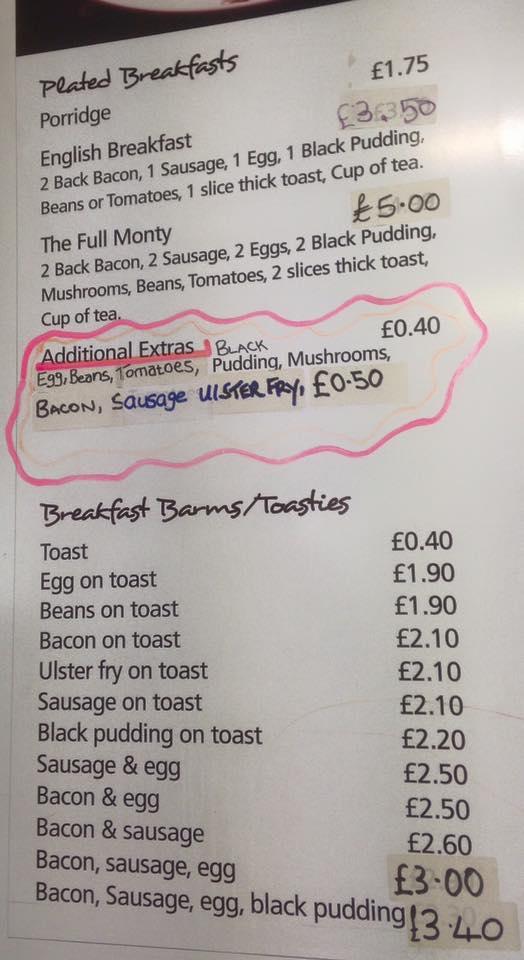 Plated Breakfasts
Porridge £1.75
English Breakfast £3.50
2 Back Bacon, 1 Sausage, 1 Egg, 1 Black Pudding,
Beans or Tomatoes, 1 slice thick toast, Cup of tea.
The Full Monty £5.00
2 Back Bacon, 2 Sausage, 2 Eggs, 2 Black Pudding,
Mushrooms, Beans, Tomatoes, 2 slices thick toast,
Cup of tea.
Additional Extras £0.40
Egg, Beans, Tomatoes, BLACK Pudding, Mushrooms,
BACON, Sausage ULSTER FRY, £0.50
Breakfast Barms/Toasties
Toast £0.40
Egg on toast £1.90
Beans on toast £1.90
Bacon on toast £2.10
Ulster fry on toast £2.10
Sausage on toast £2.10
Black pudding on toast £2.20
Sausage & egg £2.50
Bacon & egg £2.50
Bacon & sausage £2.60
Bacon, sausage, egg £3.00
Bacon, Sausage, egg, black pudding £3.40